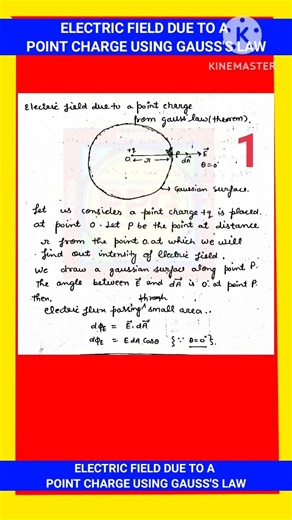 ELECTRIC FIELD DUE TO A
POINT CHARGE USING GAUSS'S LAW
K
KINEMASTER
Electric field due to a point charge
from gauss law (theorem).
+q
O
r
P
dA⃗
E⃗
θ=0°
1
Gaussian surface.
Let us consider a point charge +q is placed
at point O. Let P be the point at distance
r from the point O. at which we will
find out intensity of electric field.
we draw a gaussian surface along point P.
The angle between E⃗ and dA⃗ is 0° at point P.
Then,
through
electric flux passing ^ small area..
dφE = E⃗.dA⃗
dφE = E dA cosθ {∵ θ=0°}
ELECTRIC FIELD DUE TO A
POINT CHARGE USING GAUSS'S LAW